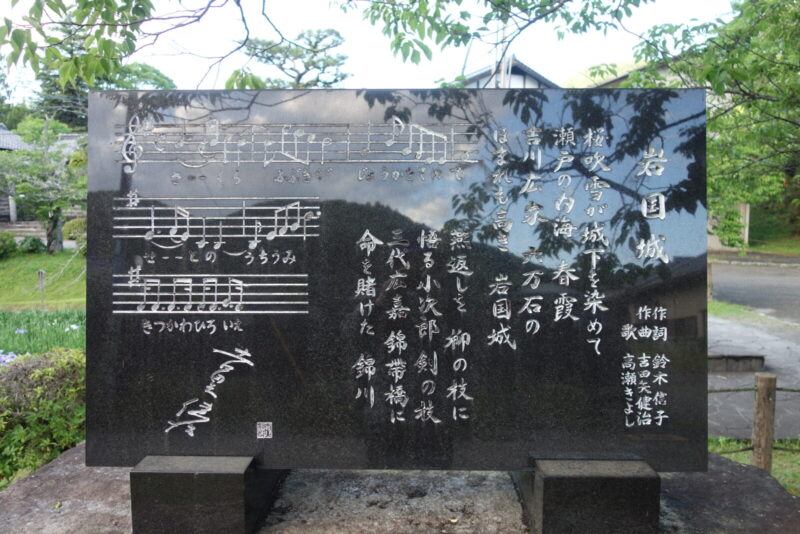 岩国城
作詞 鈴木信子
作曲 吉田矢健治
歌 高瀬きよし
桜吹雪が城下を染めて
瀬戸の内海 春霞
吉川広家 六万石の
ほまれも高き 岩国城
燕返しを 柳の枝に
悟る小次郎 剣の技
三代広嘉 錦帯橋に
命を賭けた 錦川
さーくら ふぶきが じょうかをそめて
せーとの うちうみ
きつかわひろ いえ